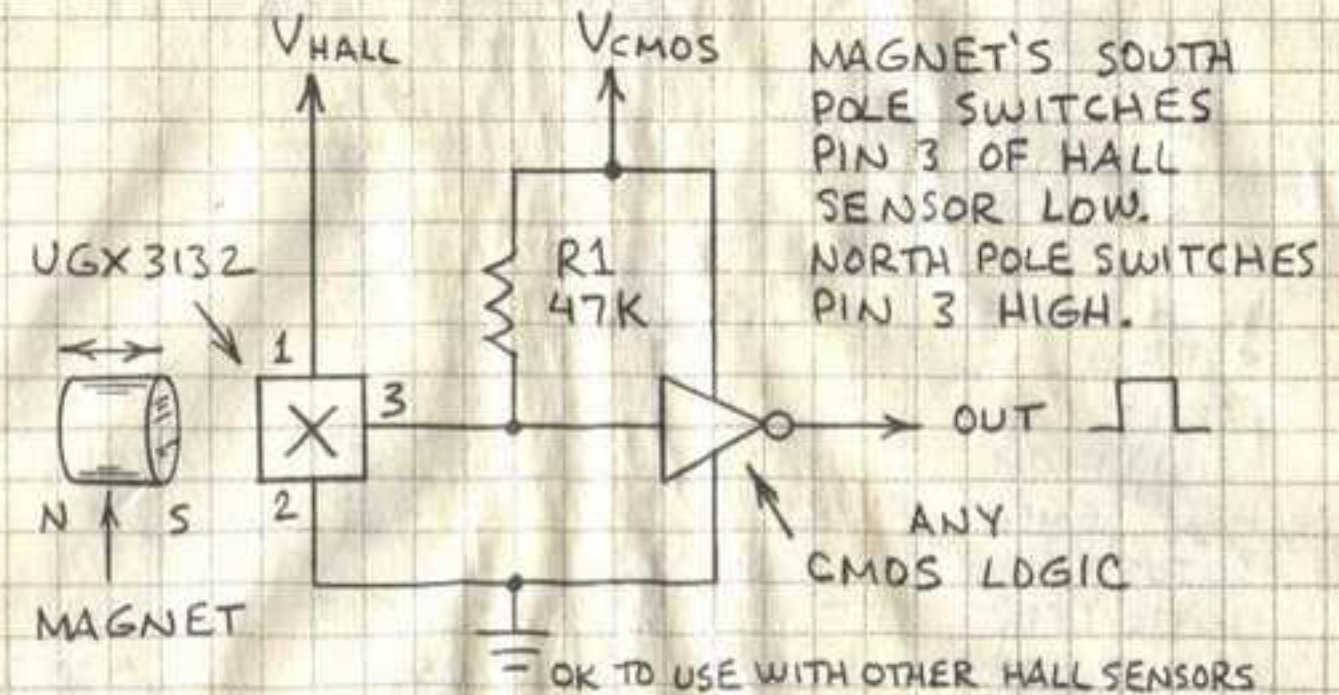 VHALL
VCMOS
MAGNET'S SOUTH
POLE SWITCHES
PIN 3 OF HALL
SENSOR LOW.
NORTH POLE SWITCHES
PIN 3 HIGH.
UGX3132
R1
47K
1
3
2
X
OUT
N
S
MAGNET
ANY
CMOS LOGIC
OK TO USE WITH OTHER HALL SENSORS